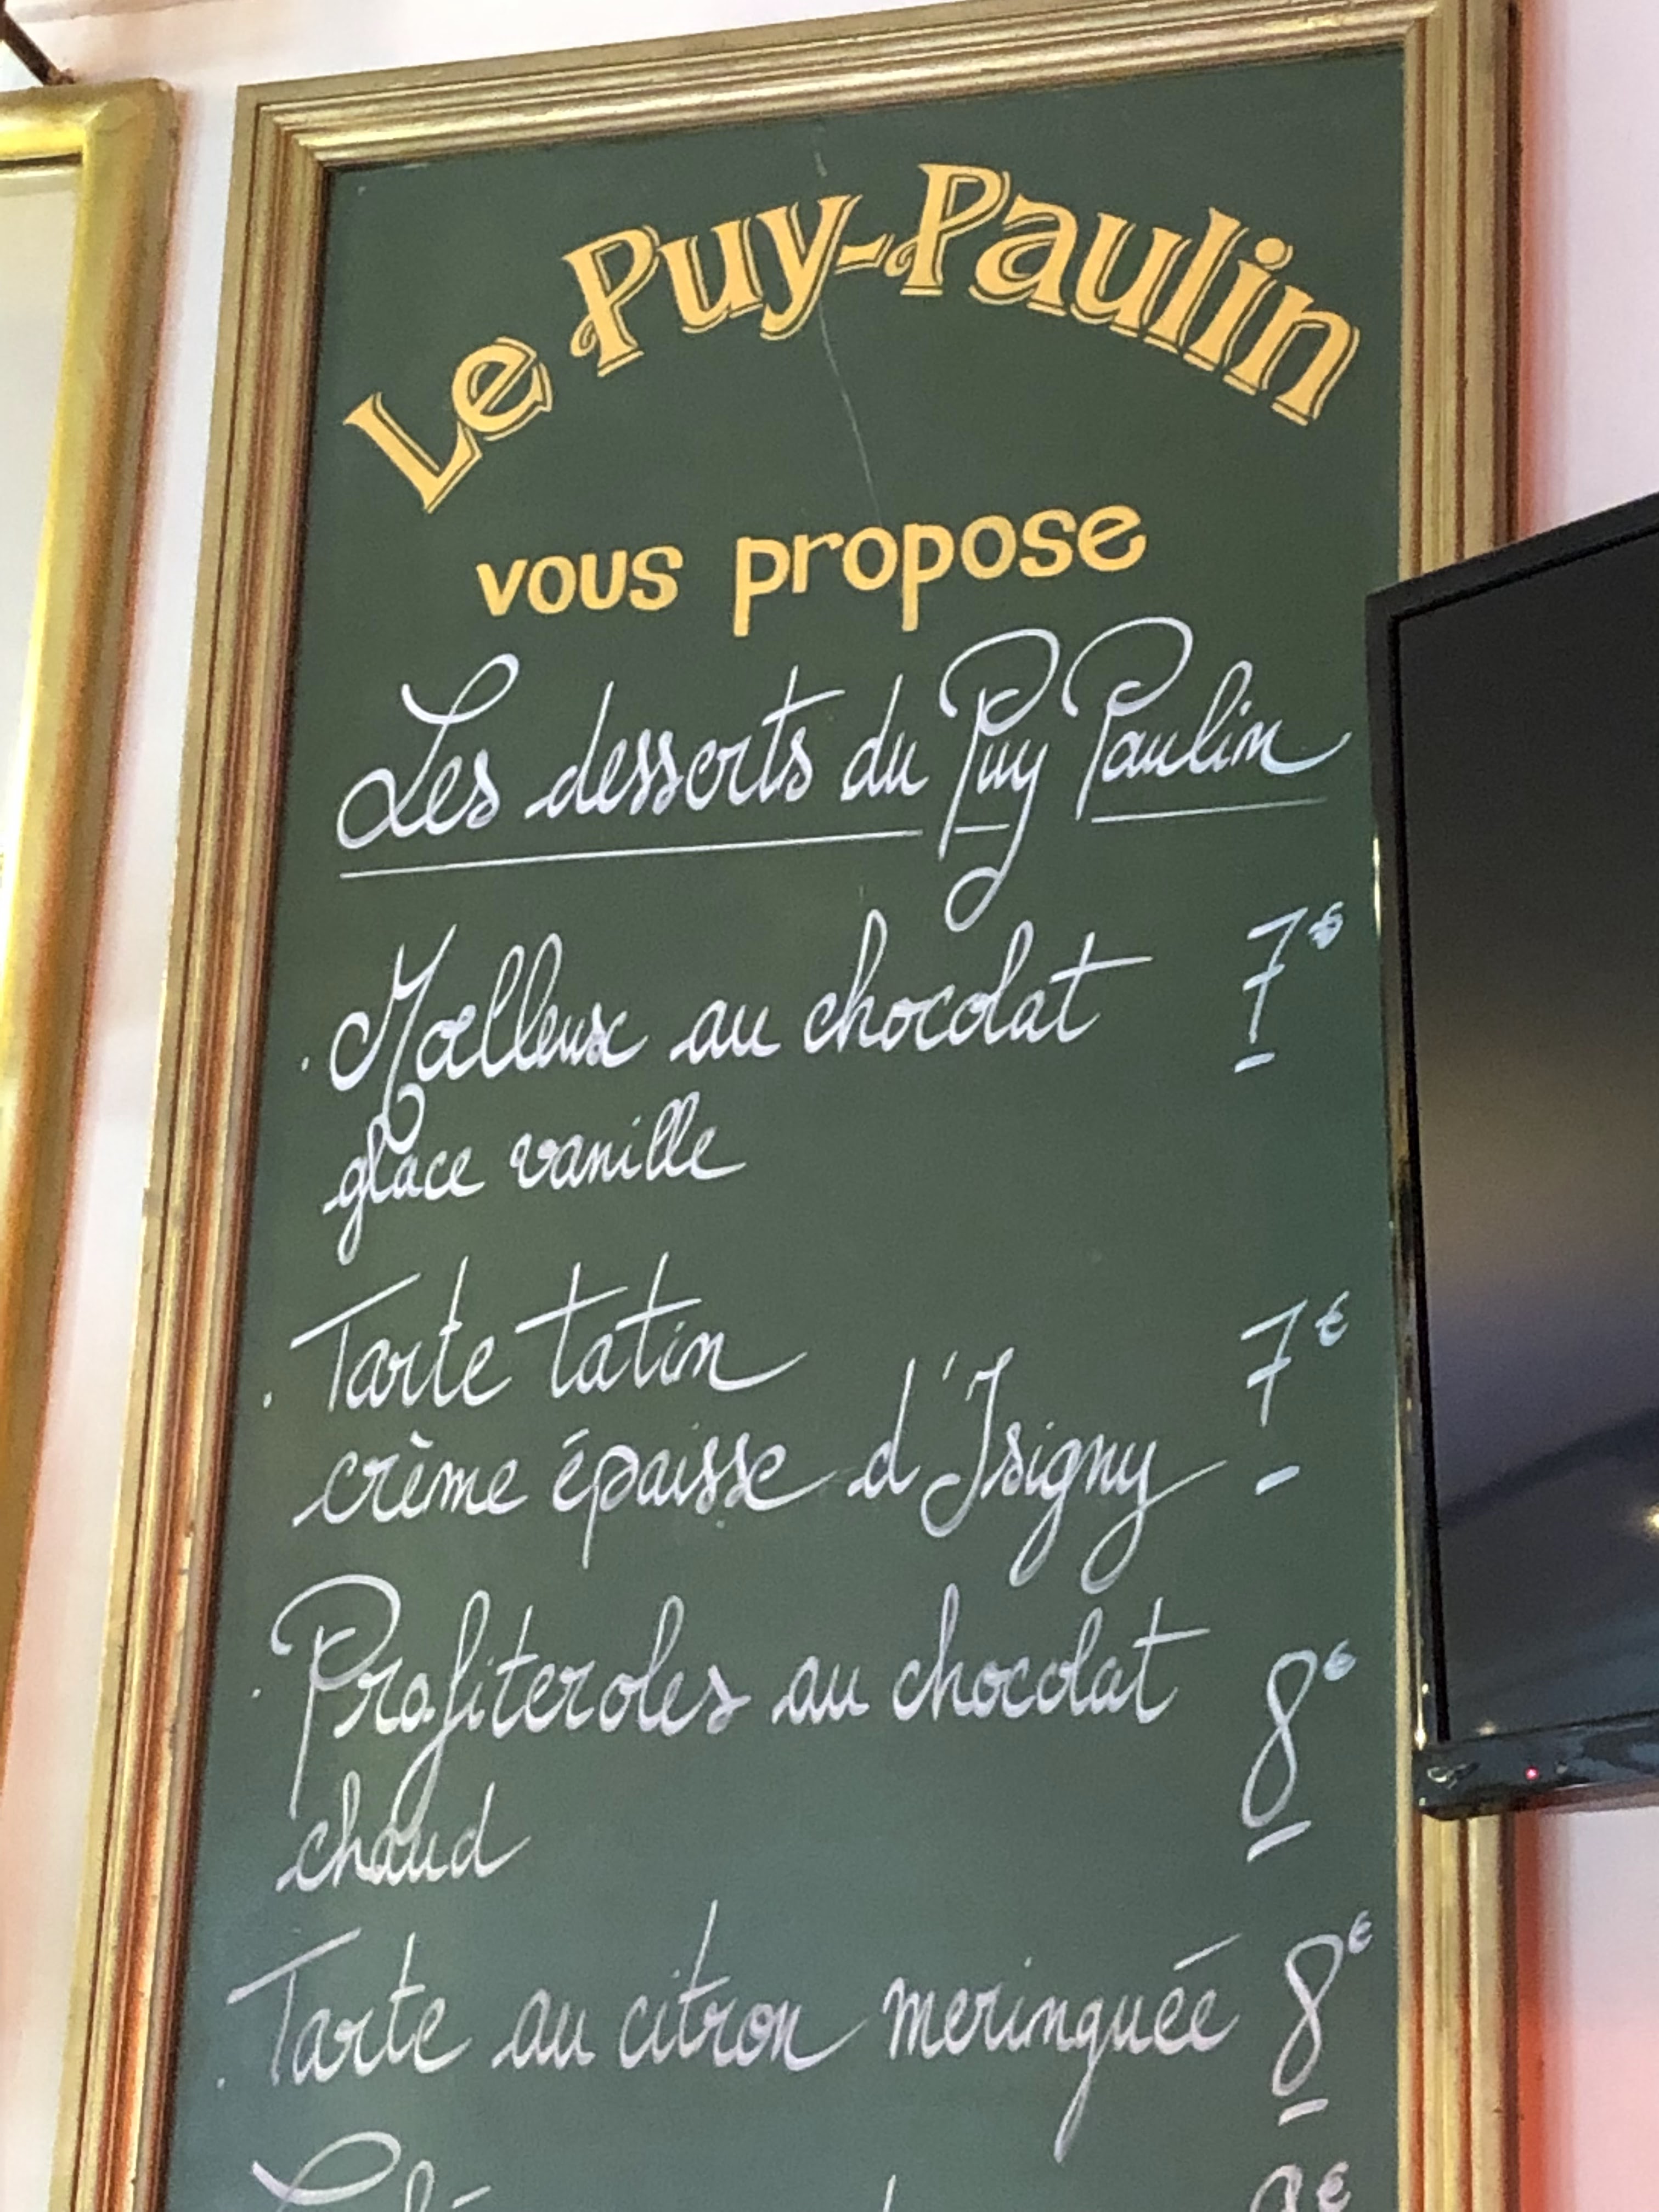 Le Puy-Paulin
vous propose
Les desserts du Puy Paulin
. Moelleux au chocolat 7€
glace vanille
. Tarte tatin 7€
crème épaisse d'Isigny
. Profiteroles au chocolat 8€
chaud
. Tarte au citron meringuée 8€